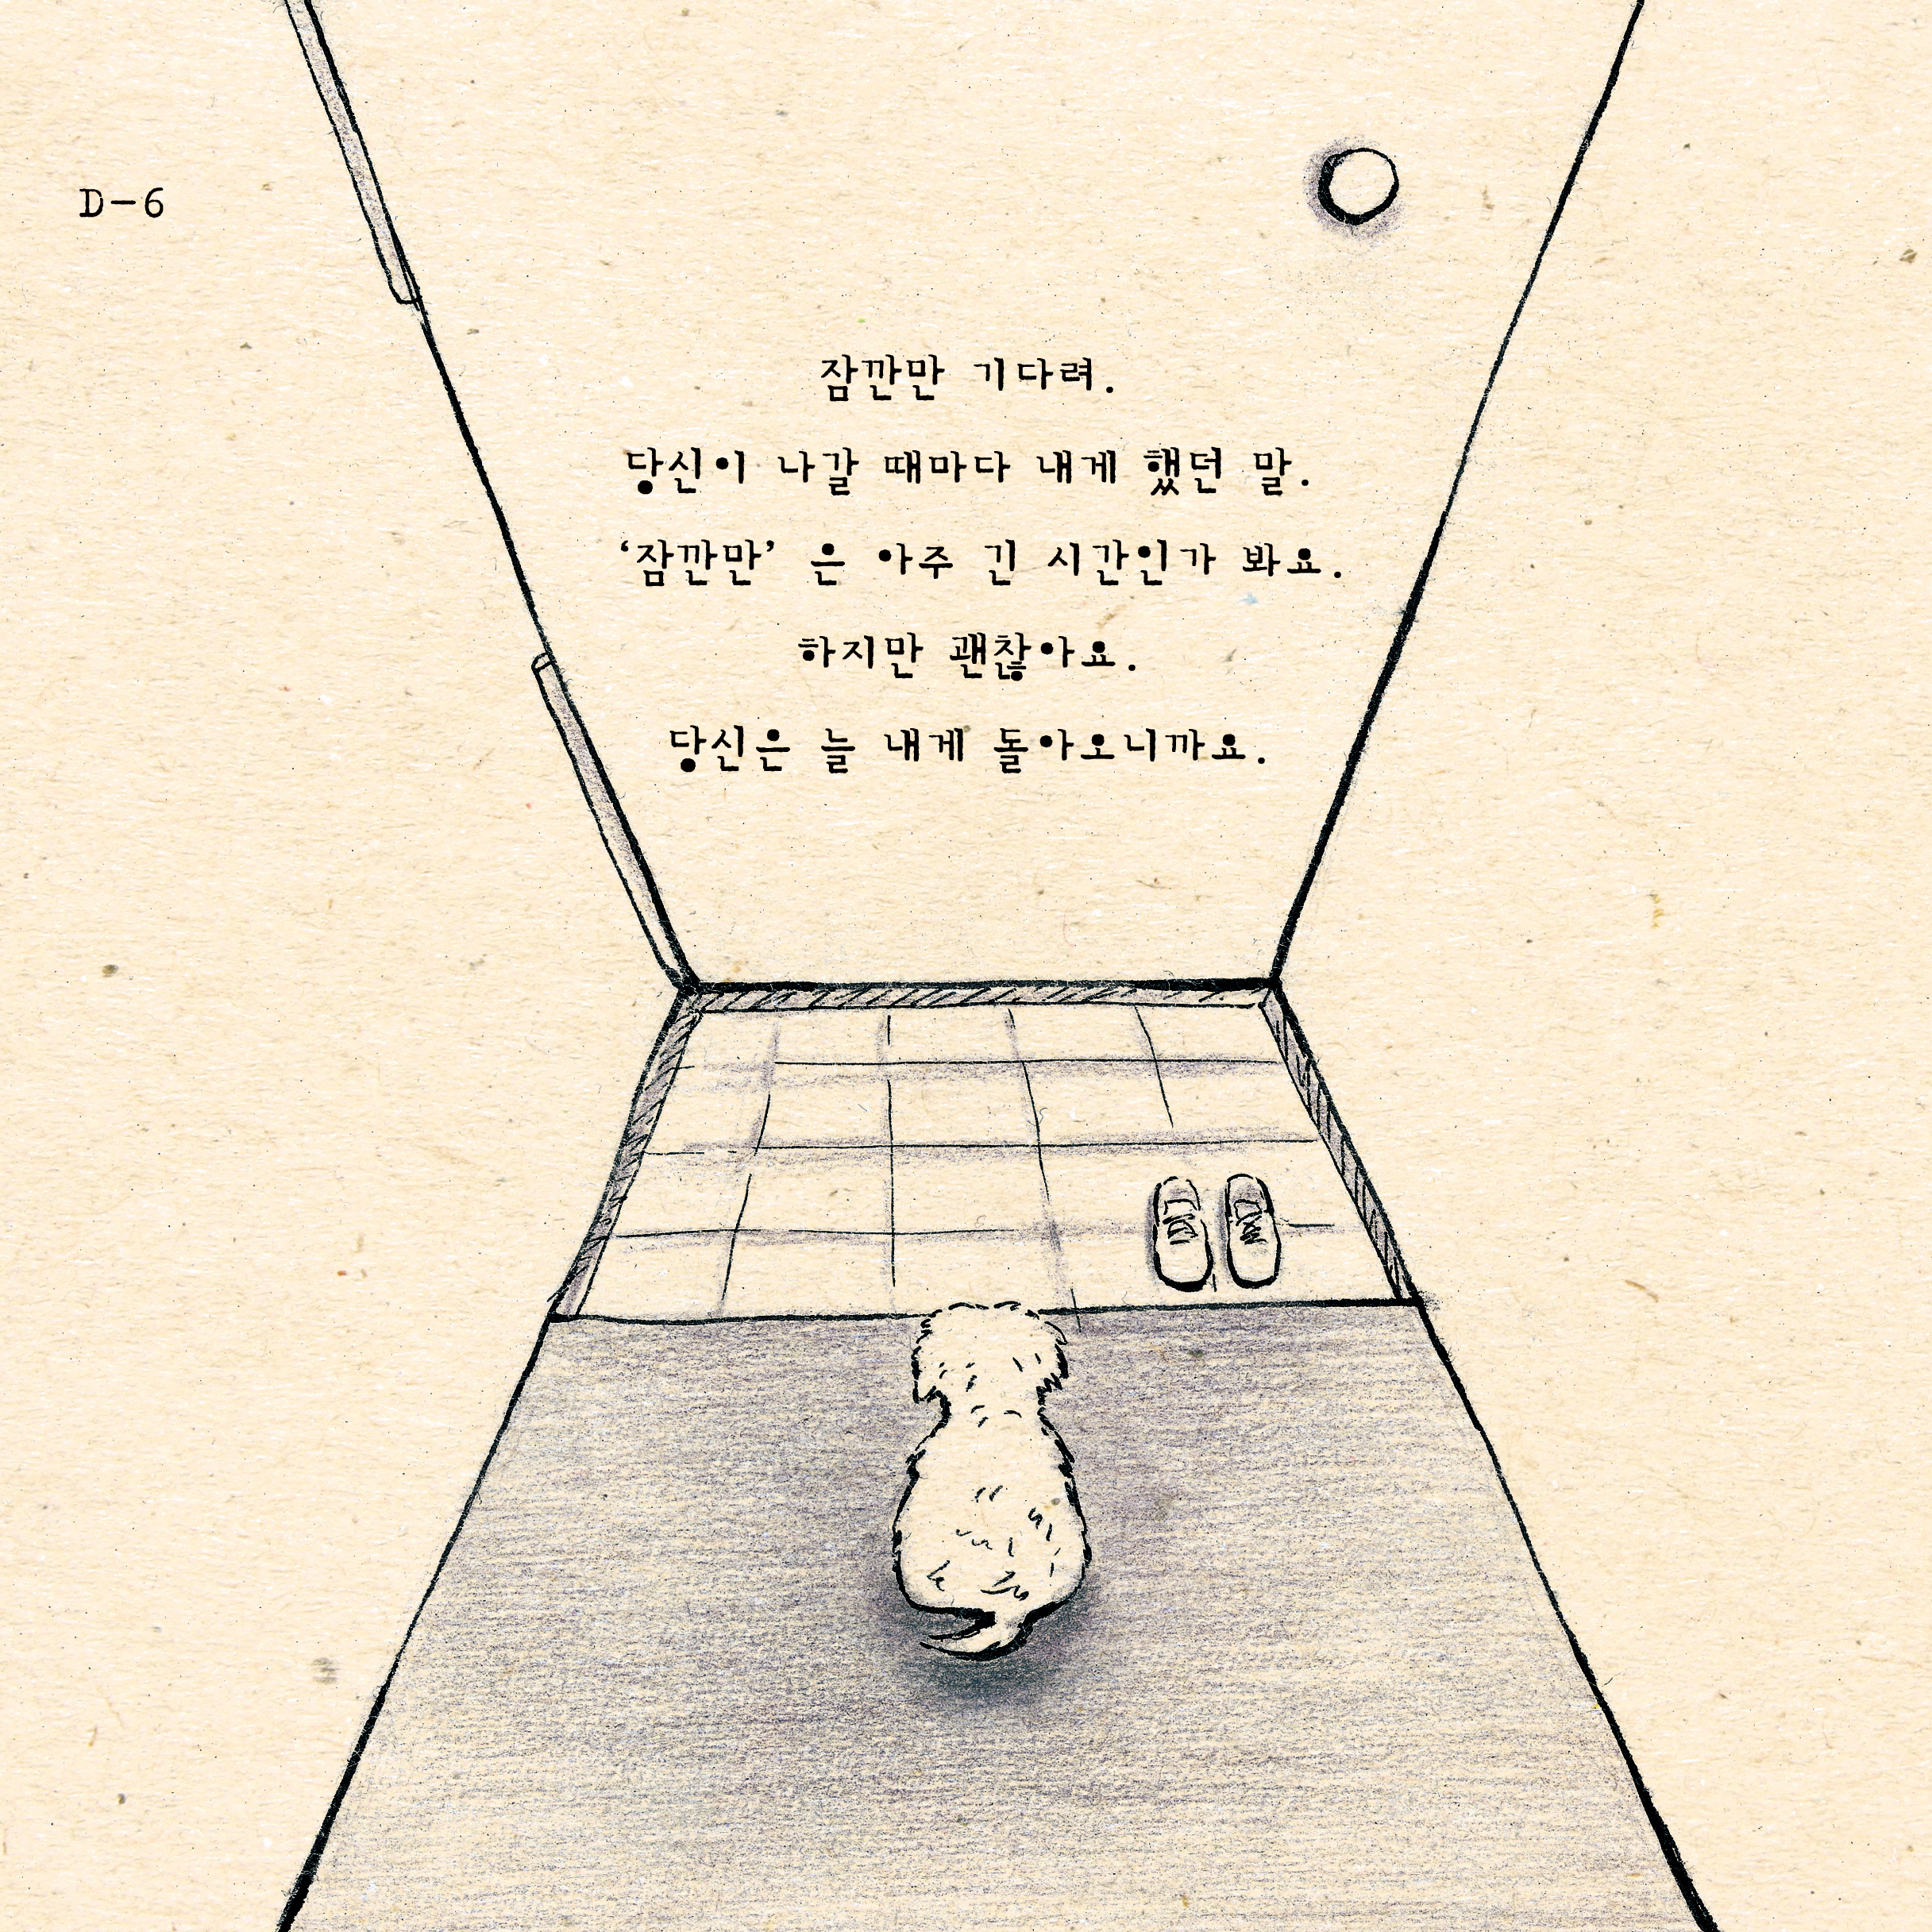 D-6
잠깐만 기다려.
당신이 나갈 때마다 내게 했던 말.
‘잠깐만’ 은 아주 긴 시간인가 봐요.
하지만 괜찮아요.
당신은 늘 내게 돌아오니까요.